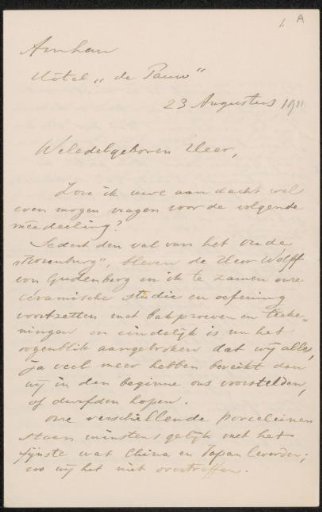 A
Arnhem
Hôtel „de Pauw"
23 Augustus 1911
Weledelgeboren Heer,
Zou ik uwe aandacht wel
even mogen vragen voor de volgende
mededeeling?
Sedert den val van het oude
„Rozenburg", bleven de Heer Wolff
von Gudenberg en ik te zamen onze
céramische studie en oefening
voortzetten met bakproeven en
en eindelijk is nu het
oogenblik aangebroken dat wij alles,
ja veel meer hebben bereikt dan
wij in den beginne ons voorstelden,
of durfden hopen.
Onze verschillende porceleinen
staan minstens gelijk met het
fijnste wat China en Japan leverden;
zoo wij het niet overtreffen.